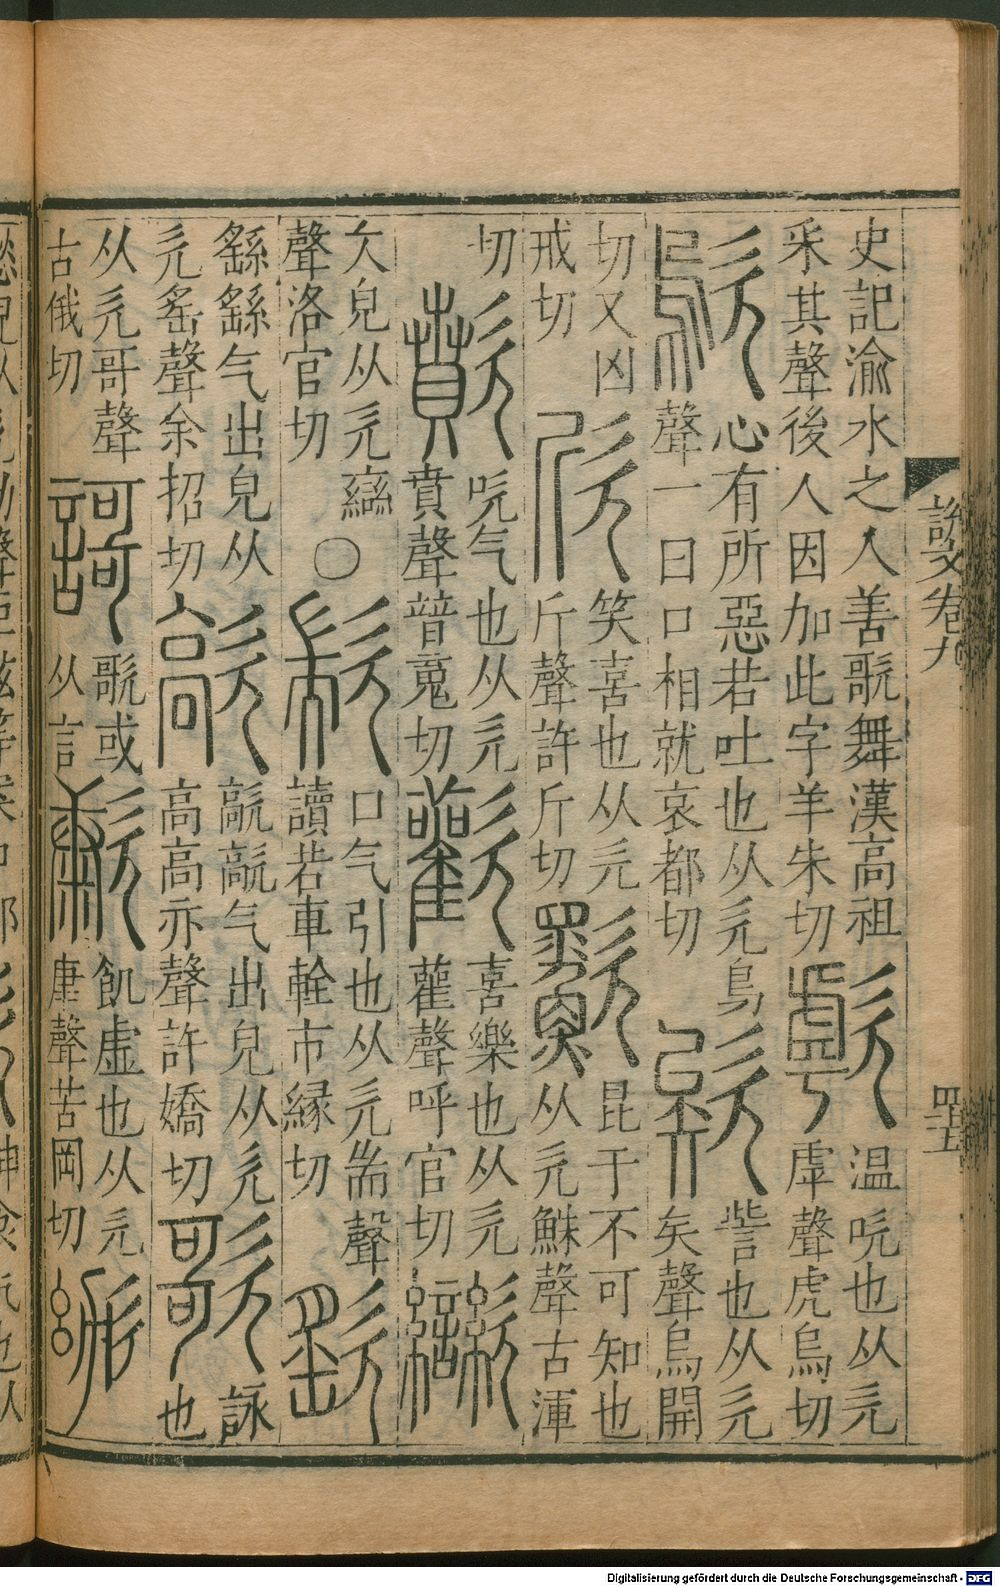 說文卷九
四十五
史記渝水之人善歌舞漢高祖采其聲後人因加此字羊朱切歑温吹也从欠虖聲虎烏切
歍心有所惡若吐也从欠烏聲一曰口相就哀都切欸訾也从欠矣聲烏開
切又凶戒切欣笑喜也从欠斤聲許斤切昆于不可知也从欠鰥聲古渾
切歕吹气也从欠賁聲普䰟切歡喜樂也从欠雚聲呼官切
欠皃从欠䜌聲洛官切〇歂口气引也从欠耑聲讀若車輇市緣切
繇繇气出皃从欠䍃聲余招切歊歊歊气出皃从欠高高亦聲許嬌切歌詠也
从欠哥聲古俄切謌歌或从言㱂飢虛也从欠康聲苦岡切
Digitalisierung gefördert durch die Deutsche Forschungsgemeinschaft - DFG